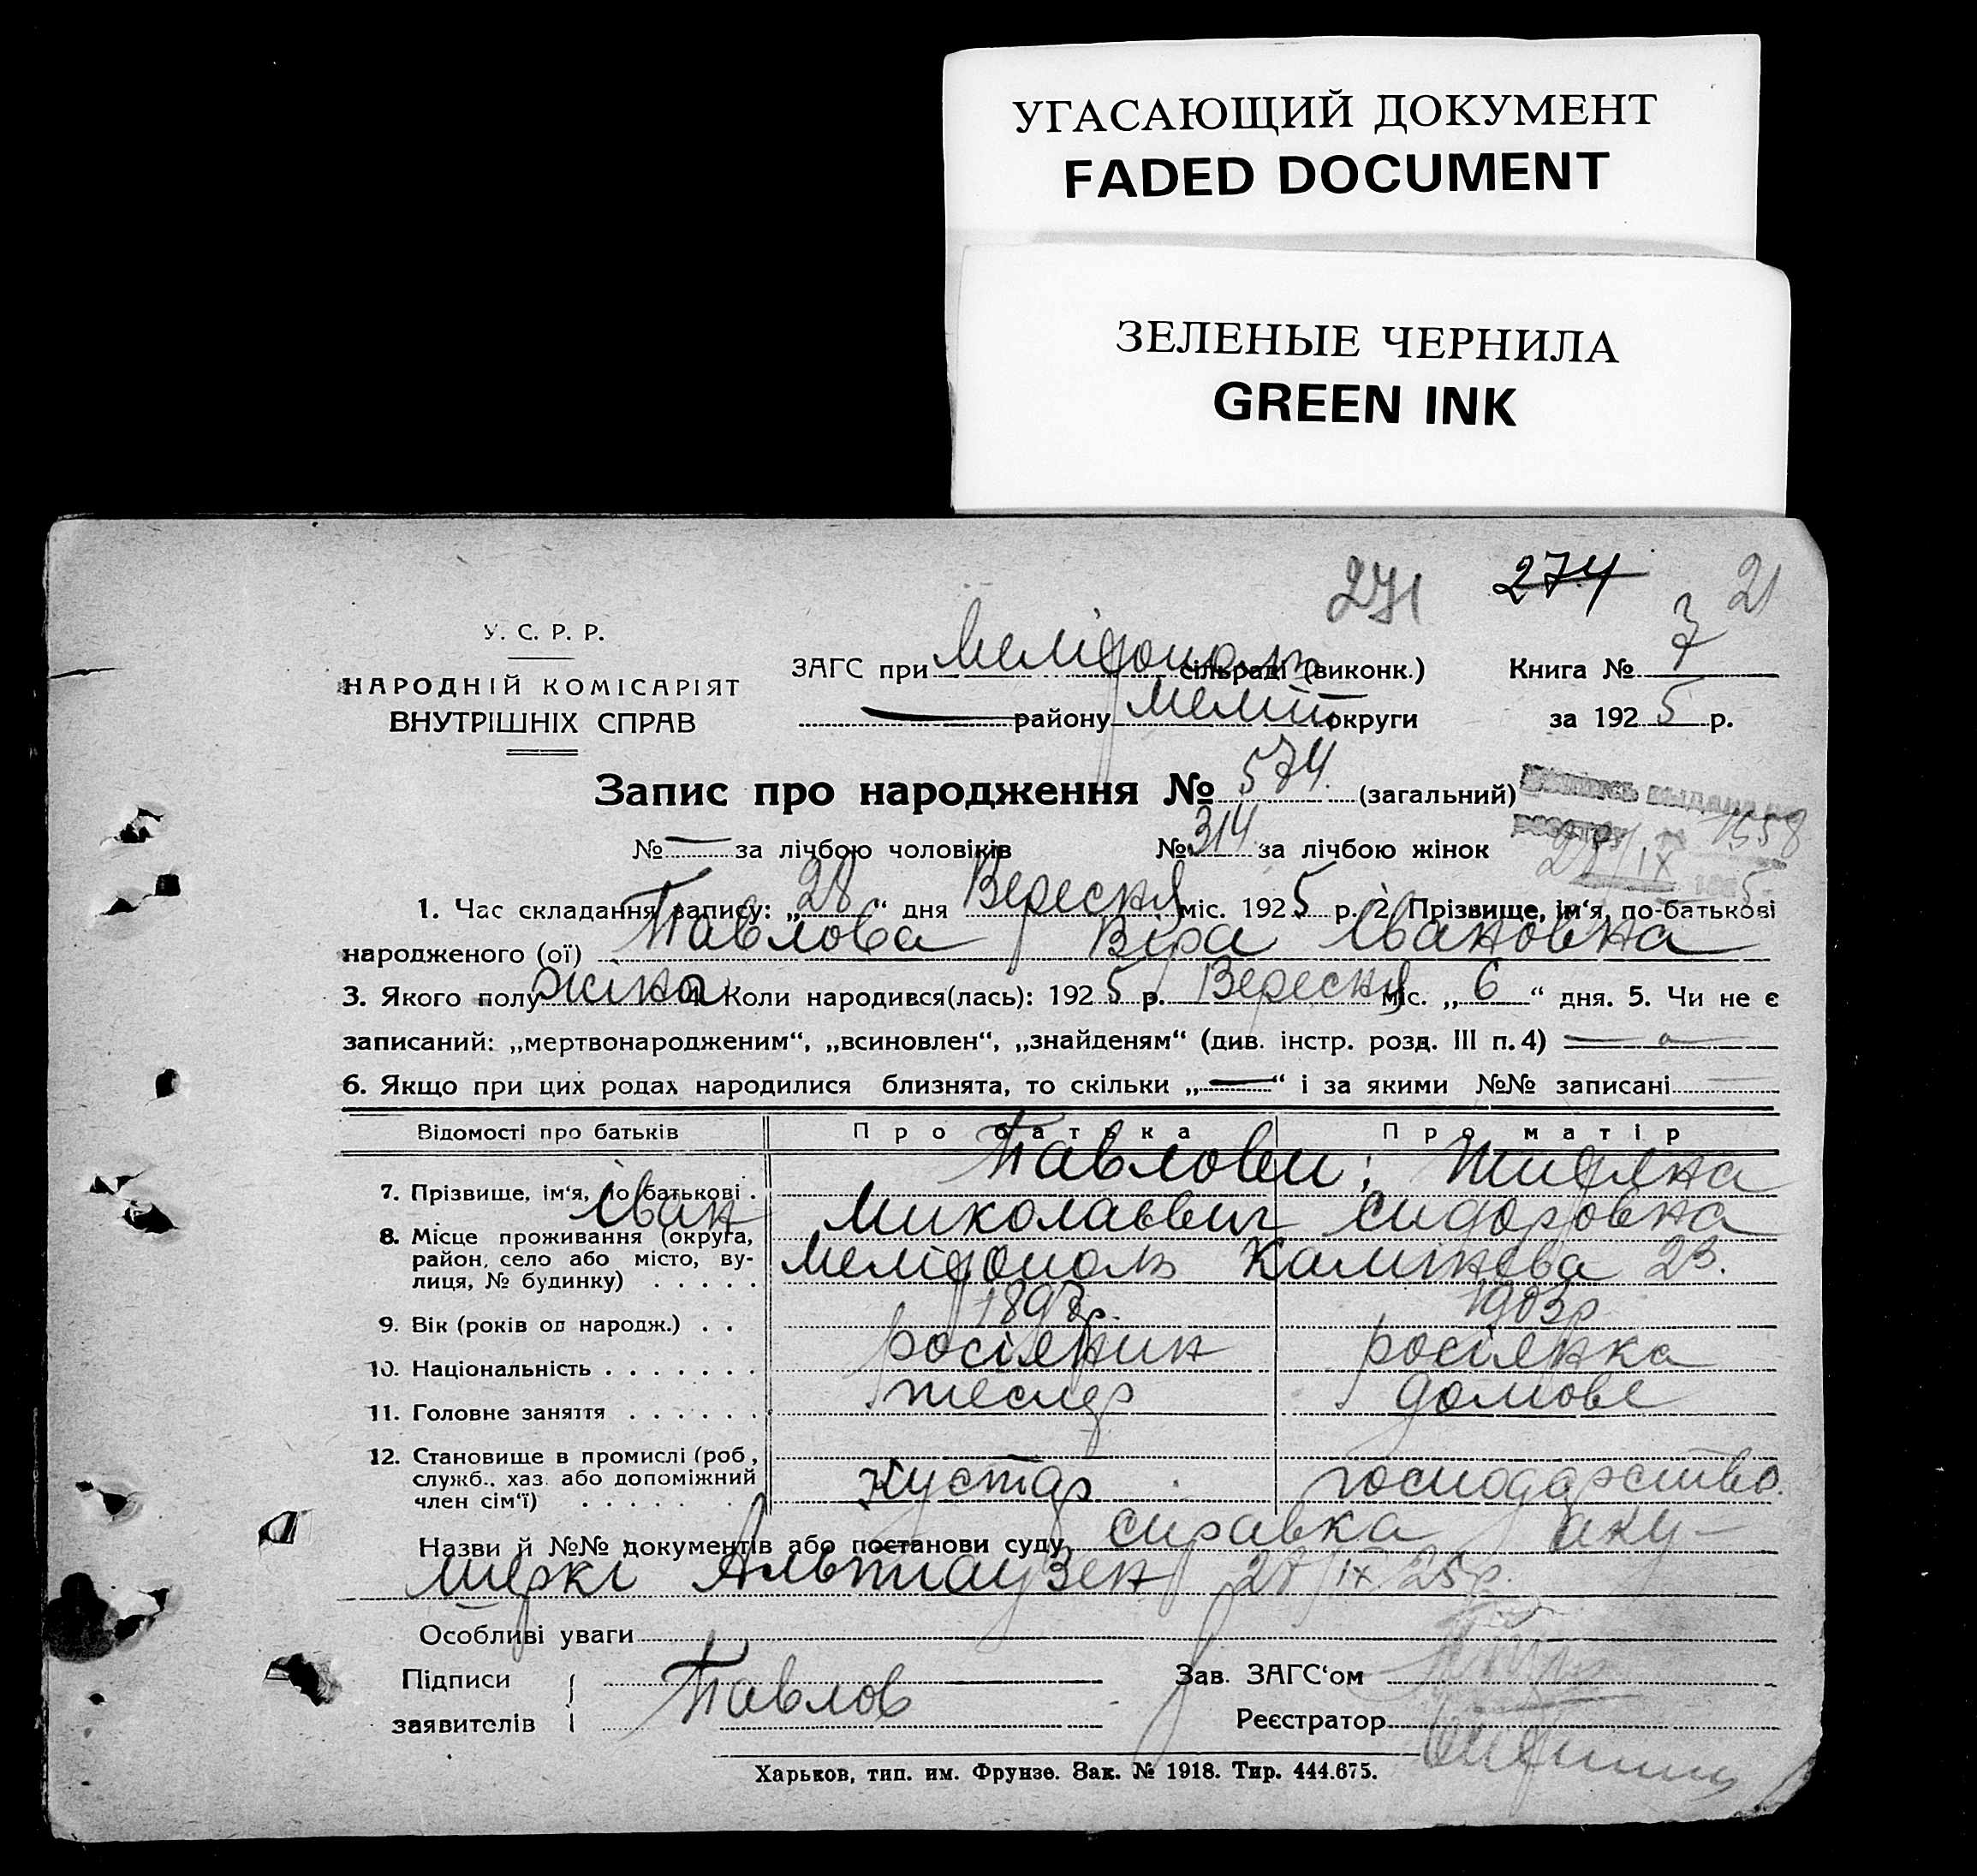 УГАСАЮЩИЙ ДОКУМЕНТ
FADED DOCUMENT
ЗЕЛЕНЫЕ ЧЕРНИЛА
GREEN INK
271 274 21
У. С. Р. Р.
НАРОДНІЙ КОМІСАРІЯТ
ВНУТРІШНІХ СПРАВ
ЗАГС при Мелітополь сільраді (виконк.) Книга № 7
— району Меліт округи за 1925 р.
Запис про народження № 574. (загальний)
выдана
№ — за лічбою чоловіків № 314 за лічбою жінок
1558
28/IX 5
1. Час складання запису: „28“ дня Вересня міс. 1925 р. 2. Прізвище, ім‘я, по-батькові
народженого (ої) Павлова Віра Івановна
3. Якого полу жіноч 4. Коли народився(лась): 1925 р. Вересня міс. „6“ дня. 5. Чи не є
записаний: „мертвонародженим“, „всиновлен“, „знайденям“ (див. інстр. розд. III п. 4) —
6. Якщо при цих родах народилися близнята, то скільки „—“ і за якими №№ записані —
Відомості про батьків Про батька Про матір
7. Прізвище, ім‘я, по батькові . Павлови;
Іван Миколаввич Сидоровна
8. Місце проживання (округа,
район, село або місто, ву-
лиця, № будинку) . . . . . Мелітополь Калінєва 23.
9. Вік (років од народж.) . . 1898р. 1903р
10. Національність . . . . . . . росіянин росіянка
11. Головне заняття . . . . . . тесляр домове
12. Становище в промислі (роб.,
служб.. хаз. або допоміжний
член сім‘ї) . . . . . . . кустар господарство.
Назви й №№ документів або постанови суду справка аку-
шеркі Альтгаузен 27/IX 25р.
Особливі уваги
Підписи
заявителів Павлов
Зав. ЗАГС‘ом
Реєстратор
Харьков, тип. им. Фрунзе. Зак. № 1918. Тир. 444.675.